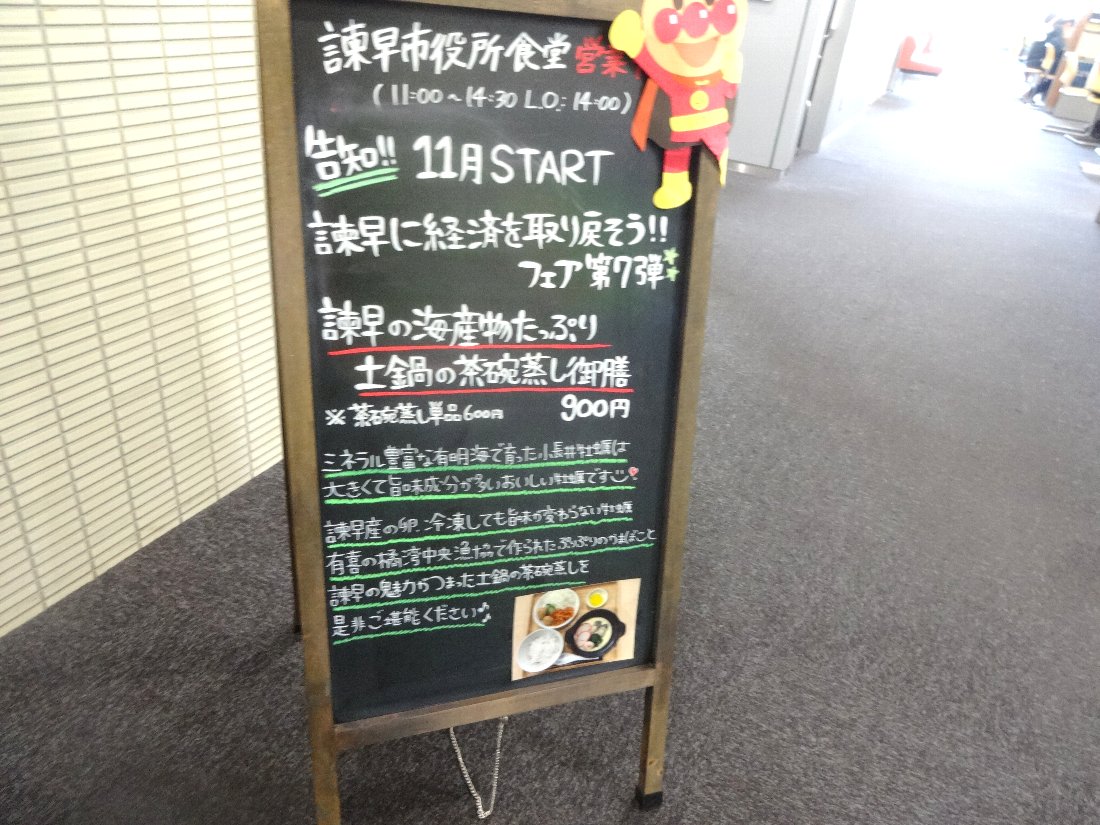 諫早市役所食堂 営業
(11:00～14:30 L.O: 14:00)
告知!! 11月START
諫早に経済を取り戻そう!!
フェア第7弾
諫早の海産物たっぷり
土鍋の茶碗蒸し御膳
※茶碗蒸し単品600円 900円
ミネラル豊富な有明海で育った小長井牡蠣は
大きくて旨味成分が多いおいしい牡蠣です
諫早産の卵、冷凍しても旨味が変わらない牡蠣
有喜の橘湾中央漁協で作られたぷりぷりのかまぼこと
諫早の魅力がつまった土鍋の茶碗蒸しを
是非ご堪能ください♪